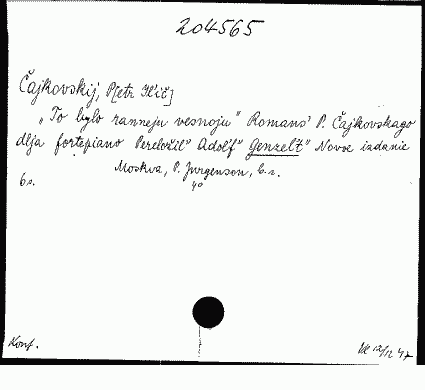 204565
Čajkovskij, P[etr Il'ič]
„To bylo ranneju vesnoju" Romans' P. Čajkovskago
dlja fortepiano Pereložil" Adol'f" Genzel't" Novoe izdanie
Moskva, P. Jurgenson, b. r.
6 s. 4°
Konf.
12/12 47